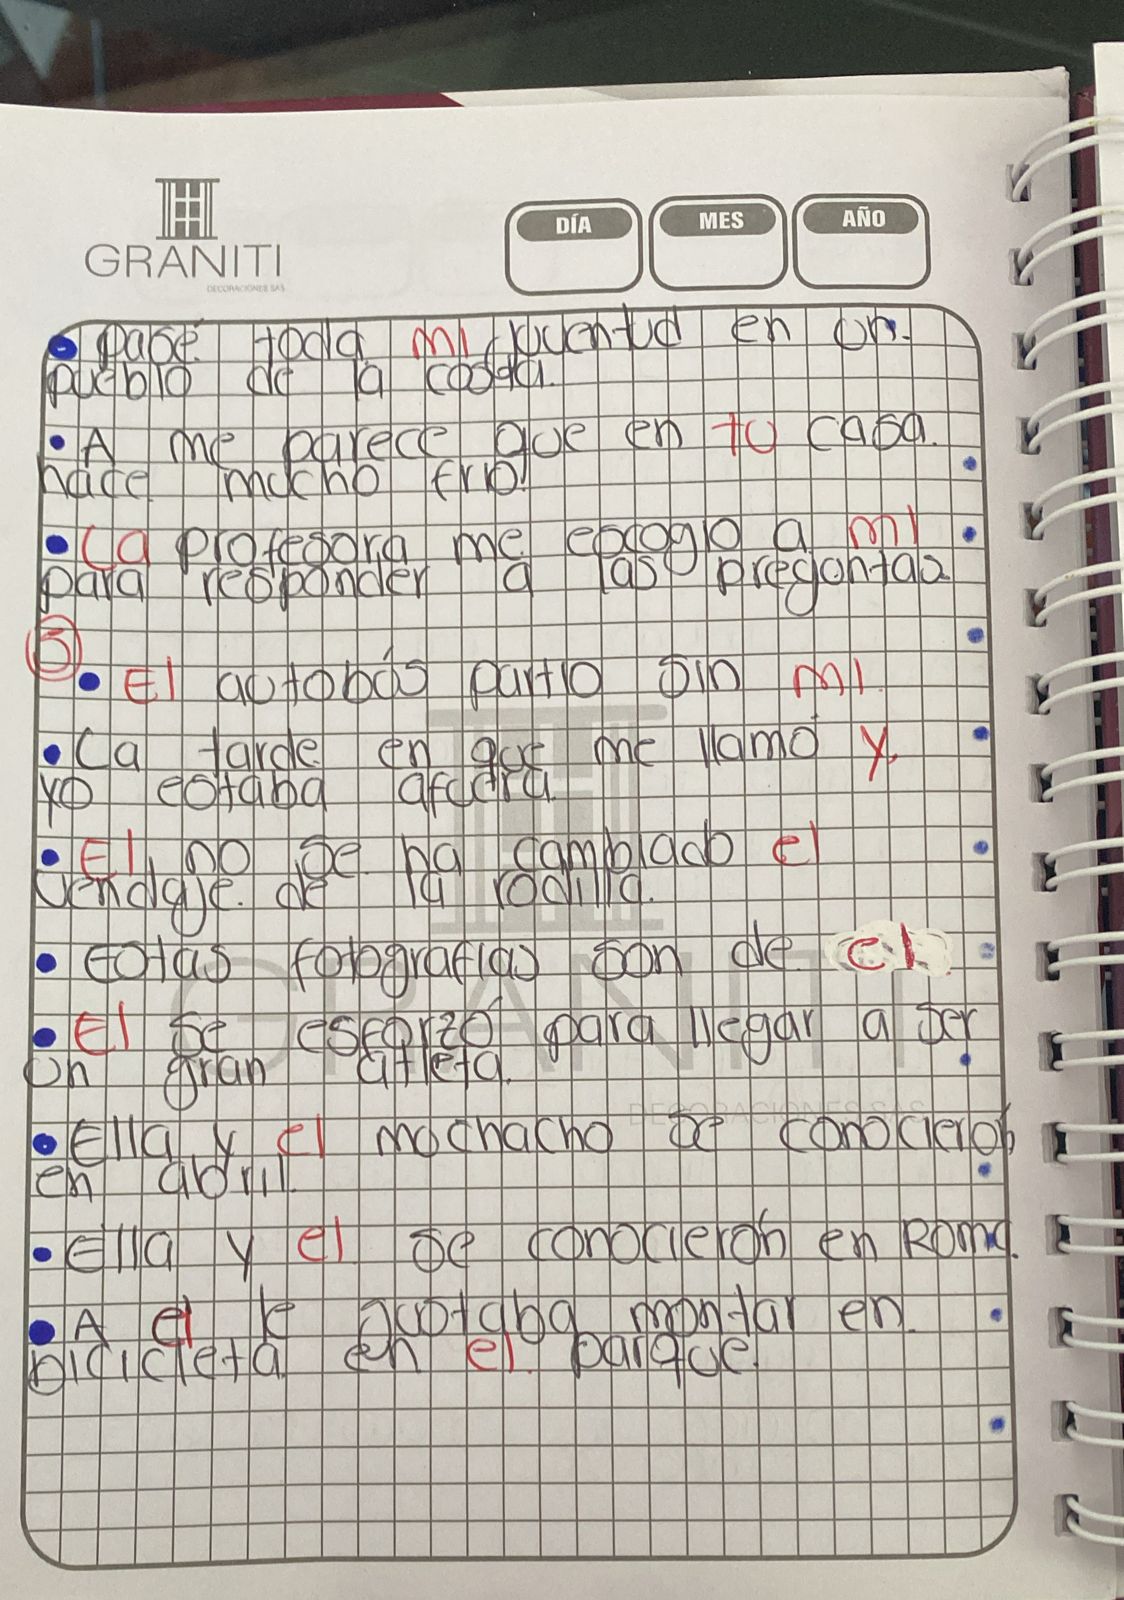 GRANITI
DECORACIONES SAS
DÍA
MES
AÑO
• pasé toda mi juventud en un.
pueblo de la costa.
• A me parece que en tu casa.
hace mucho frio!
• La profesora me escogio a mi
para responder a las preguntas
3
• El autobús partio sin mi.
• La tarde en que me llamó y.
yo estaba afuera.
• El no se ha cambiado el
vendaje. de la rodilla.
• Estas fotografias son de el
• El se esforzó para llegar a ser
un gran atleta.
• Ella y el muchacho se conocierón
en abril.
• Ella y el se conocierón en Roma.
• A el le gustaba montar en.
bicicleta en el. parque.
GRANITI
DECORACIONES SAS